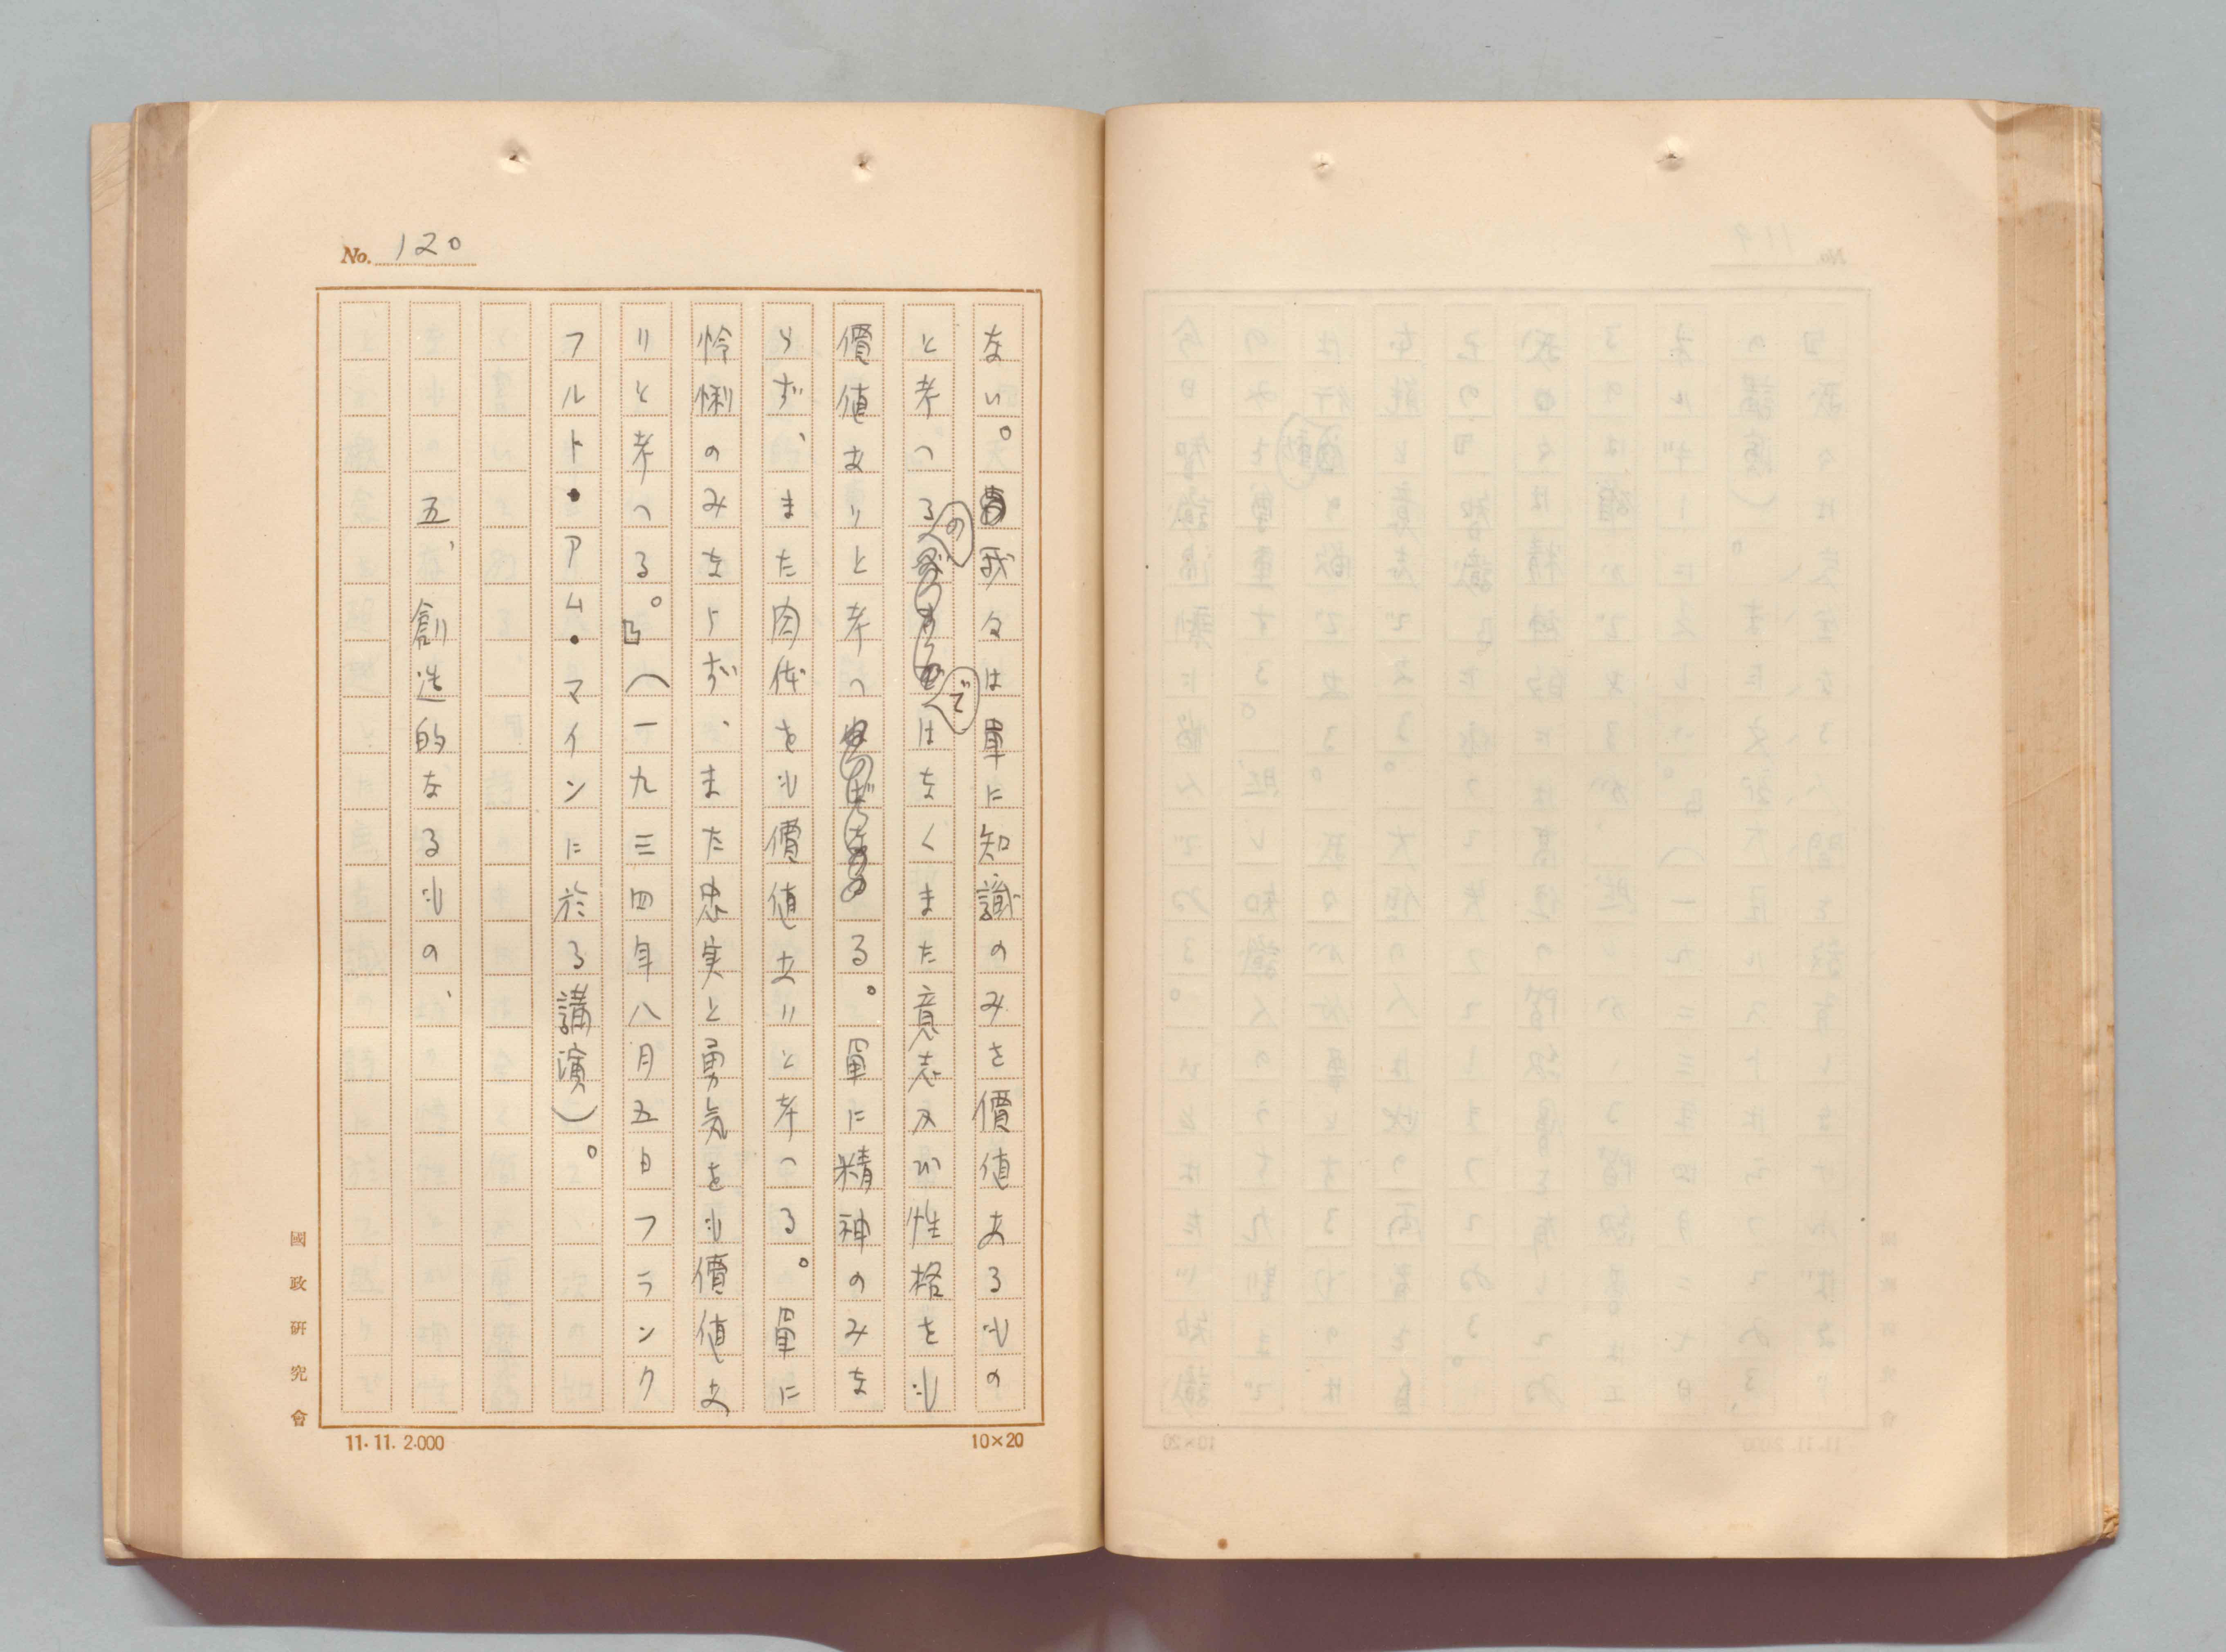 No. 120
ない。我々は單に知識のみを價値あるもの
と考へるのではなくまた意志及び性格をも
價値ありと考へる。單に精神のみな
らず、また肉体をも價値ありと考へる。單に
怜悧のみならず、また忠実と勇気をも價値あ
りと考へる。』(一九三四年八月五日フランク
フルト・アム・マインに於る講演)。
五、創造的なるもの、
國政研究會
11.11.2.000
10×20